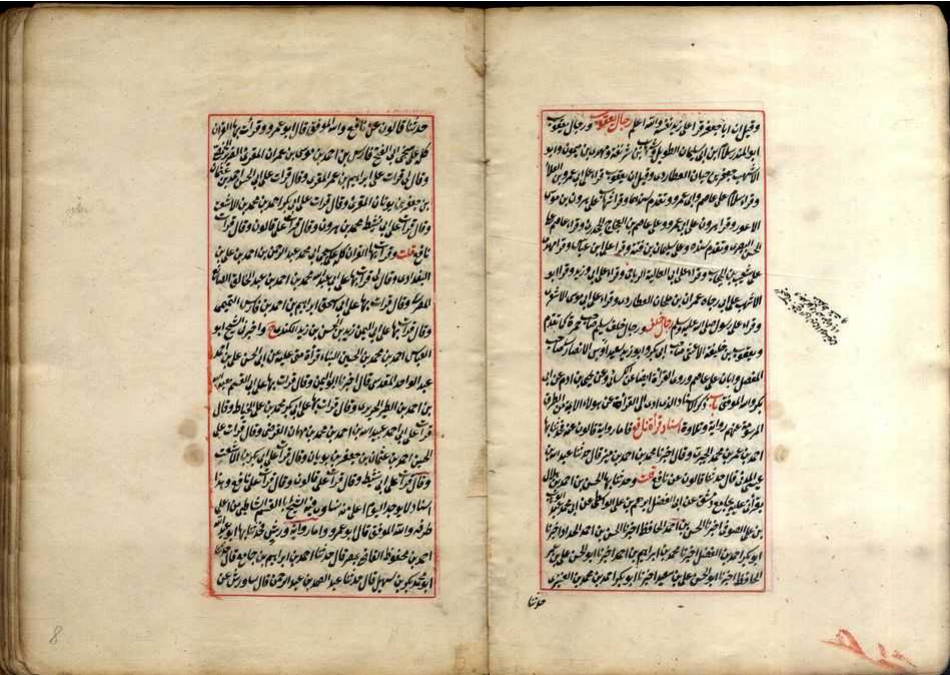 وقيل ان ابا جعفر قرا على زيد نفسه والله اعلم رجال يعقوب ورجال يعقوب
ابو المنذر سلام بن ابي سليمان الطويل وشهاب بن شرنفة ومهدي بن ميمون وابو
الاشهب جعفر بن حيان العطاردي وقيل ان يعقوب قرا على ابي عمرو بن العلا
وقرا سلام على عاصم وابي عمرو وتقدم سندهما وقرا شهاب على هرون بن موسى
الاعور وقرا هرون على ابي عمرو وعلى عاصم بن العجاج الجحدري وقرا عاصم على
الحسن البصري وتقدم سنده وعلى سليمان بن قتة وقرا على ابن عباس وقرا مهدي
على شعيب بن الحبحاب وقرا على ابي العالية الرياحي وقرا على ابي وزيد وقرا ابو
الاشهب على ابي رجاء عمران بن ملحان العطاردي وقرا على ابي موسى الاشعري
وقرا على رسول الله صلى الله عليه وسلم رجال خلف ورجال خلف سليم صاحب حمزة كما تقدم
ويعقوب بن خليفة الاعشى صاحب ابي بكر وابو زيد سعيد بن اوس الانصاري صاحب
المفضل وابان على عاصم وروى القراة ايضا عن الكسائي وعن يحيى بن ادم عن ابي
بكر والله الموفق باب ذكر الاسناد الذي ادى الي القراءة عن هولاء الايمة من الطرق
المرسومة عنهم رواية وتلاوة اسناد قراة نافع فاما رواية قالون عنه فحدثنا بها
احمد بن عمر بن محمد الجيزي وقال اخبرنا محمد بن احمد بن منير قال حدثنا عبد الله بن
عيسى المدني قال حدثنا قالون عن نافع قلت وحدثنا بها الحسن بن احمد بن هلال
بقراتي عليه بجامع دمشق عن ابي الفضل ابراهيم بن على الواسطي عن ابي محمد عبد الوهاب
بن على الصوفي اخبرنا الحسن بن احمد الحافظ اخبرنا الحسن بن احمد الحداد اخبرنا
ابو بكر احمد بن الفضل اخبرنا محمد بن ابراهيم بن احمد اخبرنا ابو الحسن على بن عمر
الحافظ اخبرنا ابو الحسن على بن سعيد اخبرنا ابو بكر احمد بن محمد بن العنزي
حدثنا
حدثنا قالون عن نافع والله الموفق قال ابو عمرو وقرات بها القران
كله على شيخي ابي الفتح فارس بن احمد بن موسى بن عمران المقري الضرير
وقال لي قرات على ابراهيم بن عمر المقري وقال قرات على ابي الحسن احمد بن عثمان
بن جعفر بن بويان المقري وقال قرات على ابي بكر احمد بن محمد بن الاشعث
وقال قرات على ابي نشيط محمد بن هرون وقال قرات على قالون وقال قرات على
نافع قلت وقرات بها القران كله على شيخي ابي محمد عبد الرحمن بن احمد بن على بن
البغدادي وقال لي قرات بها على ابي عبد الله محمد بن احمد بن عبد الخالق الصايغ
المقري وقال قرات بها على ابي اسحق ابراهيم بن احمد بن فارس التميمي
وقال قرات بها على ابي اليمن زيد بن الحسن بن زيد الكندي ح واخبرني الشيخ ابو
العباس احمد بن محمد بن الحسين البناء قراة مني عليه عن ابي الحسن على بن محمد
عبد الواحد المقدسي قال اخبرنا ابو اليمن وقال قرات بها على ابي القسم هبة الله
بن احمد بن الطبر الحريري وقال قرات بها على ابي بكر محمد بن على الخياط وقال
قرات على ابي احمد عبيد الله بن احمد بن محمد بن مهران الفرضي وقال قرات على
ابي الحسين احمد بن عثمان بن جعفر بن بويان وقال قرات على ابي بكر بن الاشعث
وقال قرات على ابي نشيط وقال قرات على قالون وقال قرات على نافع وهذا
اسناد لا يوجد اليوم اعلى منه تساوي فيه الشيخ ابا القسم الشاطبي من اعلى
طرقه والله الموفق قال ابو عمرو واما رواية ورش فحدثنا بها ابو عبد الله
احمد بن محفوظ القاضي بمصر قال حدثنا احمد بن ابراهيم بن جامع قال حدثنا
ابو محمد بكر بن سهل قال حدثنا عبد الصمد بن عبد الرحمن قال حدثنا ورش عن
8